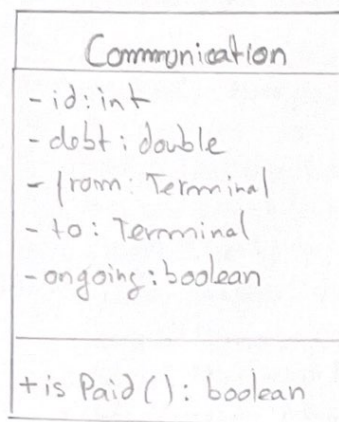 Communication
- id: int
- debt: double
- from: Terminal
- to: Terminal
- ongoing: boolean
+ is Paid(): boolean